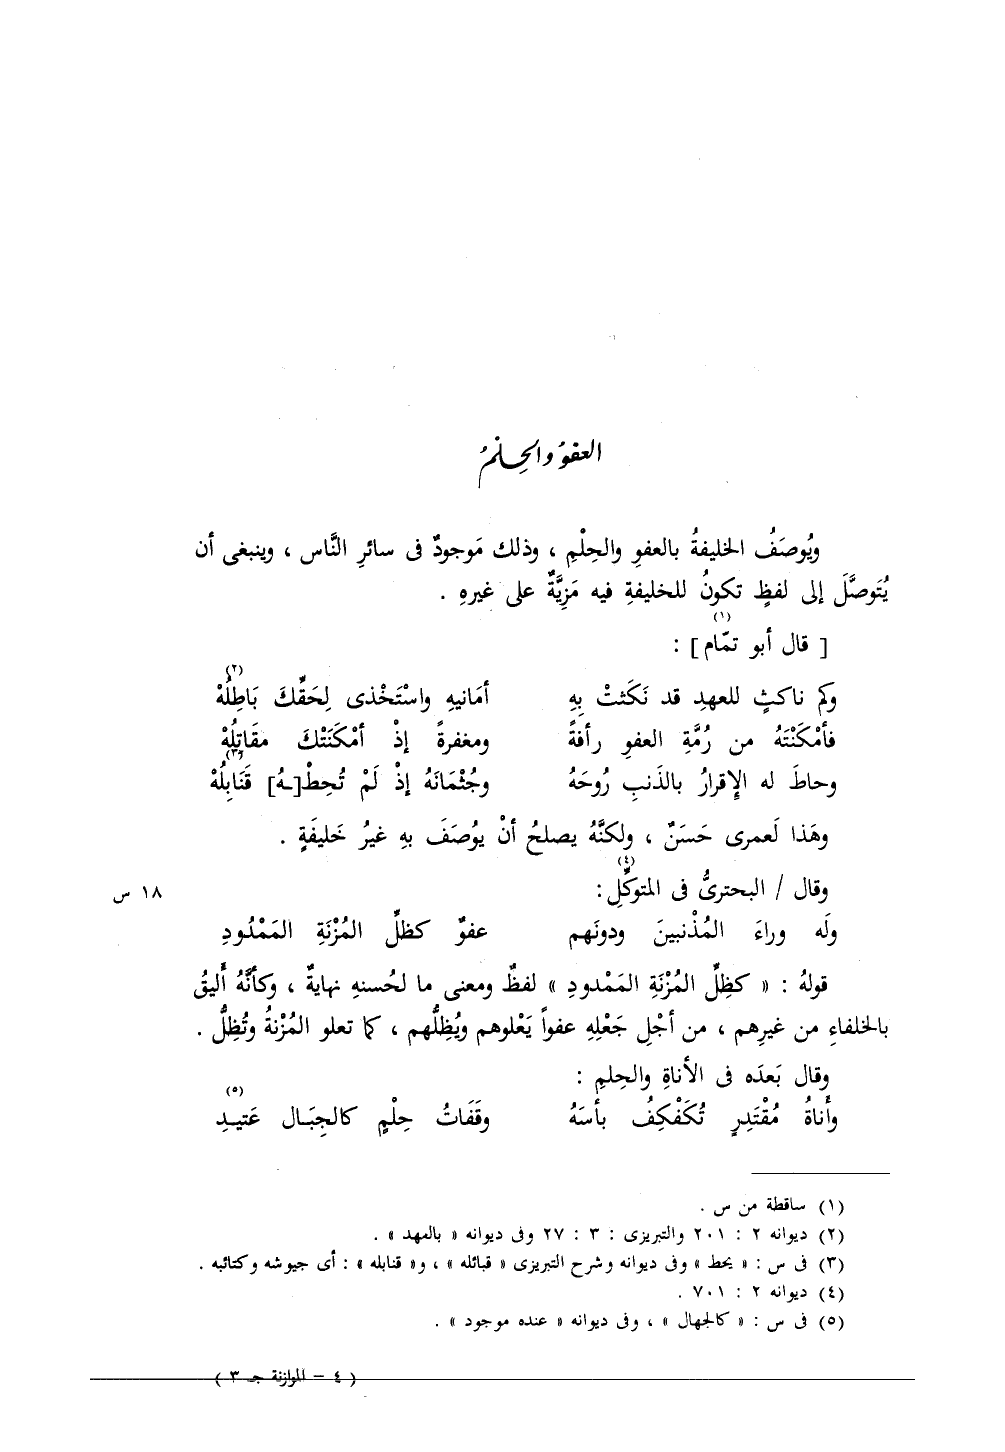 العفوُ والحِلْمُ
ويُوصَفُ الخليفةُ بالعفوِ والحِلْمِ ، وذلك مَوجودٌ فى سائرِ النَّاس ، وينبغى أن
يُتَوصَّلَ إلى لفظٍ تكونُ للخليفةِ فيه مَزِيَّةٌ على غيرهِ .
[ قال أبو تمّام ] (١) :
وكم ناكثٍ للعهدِ قد نَكَثتْ بِهِ أمَانيهِ واسْتَخْذى لِحَقِّكَ بَاطِلُهْ (٢)
فأمْكَنْتَهُ من رُمَّةِ العفوِ رأفةً ومغفرةً إذْ أمْكَنَتْكَ مقَاتِلُهْ
وحاطَ له الإقرارُ بالذَنبِ رُوحَهُ وجُثْمَانَهُ إذْ لَمْ تُحِطْ[ـهُ] قَنَابِلُهْ (٣)
وهَذا لَعمرى حَسَنٌ ، ولكنَّهُ يصلحُ أنْ يوُصَفَ بهِ غيرُ خَليفَةٍ .
وقال / البحترىُّ فى المتوكِّلِ (٤) :
١٨ س
ولَه وراءَ المُذْنبينَ ودونَهم عفوٌ كظلِّ المُزْنَةِ المَمْدُودِ
قولهُ : « كظِلِّ المُزْنَةِ المَمْدودِ » لفظٌ ومعنى ما لحُسنهِ نهايةٌ ، وكأنَّهُ أليقُ
بالخلفاءِ من غيرِهم ، من أجْلِ جَعْلِهِ عفواً يَعْلوهم ويُظِلُّهم ، كما تعلو المُزْنةُ وتُظِلُّ .
وقال بَعدَه فى الأناةِ والحِلمِ :
وأناةُ مُقْتَدِرٍ تُكَفْكِفُ بأسَهُ وقَفَاتُ حِلْمٍ كالجِبَـال عَتيـدِ (٥)
(١) ساقطة من س .
(٢) ديوانه ٢ : ٢٠١ والتبريزى : ٣ : ٢٧ وفى ديوانه « بالمهد » .
(٣) فى س : « يحط » وفى ديوانه وشرح التبريزى « قبائله » ، و« قنابله » : أى جيوشه وكتائبه .
(٤) ديوانه ٢ : ٧٠١ .
(٥) فى س : « كالجهال » ، وفى ديوانه « عنده موجود » .
( ٤ – الموازنة جـ ٣ )